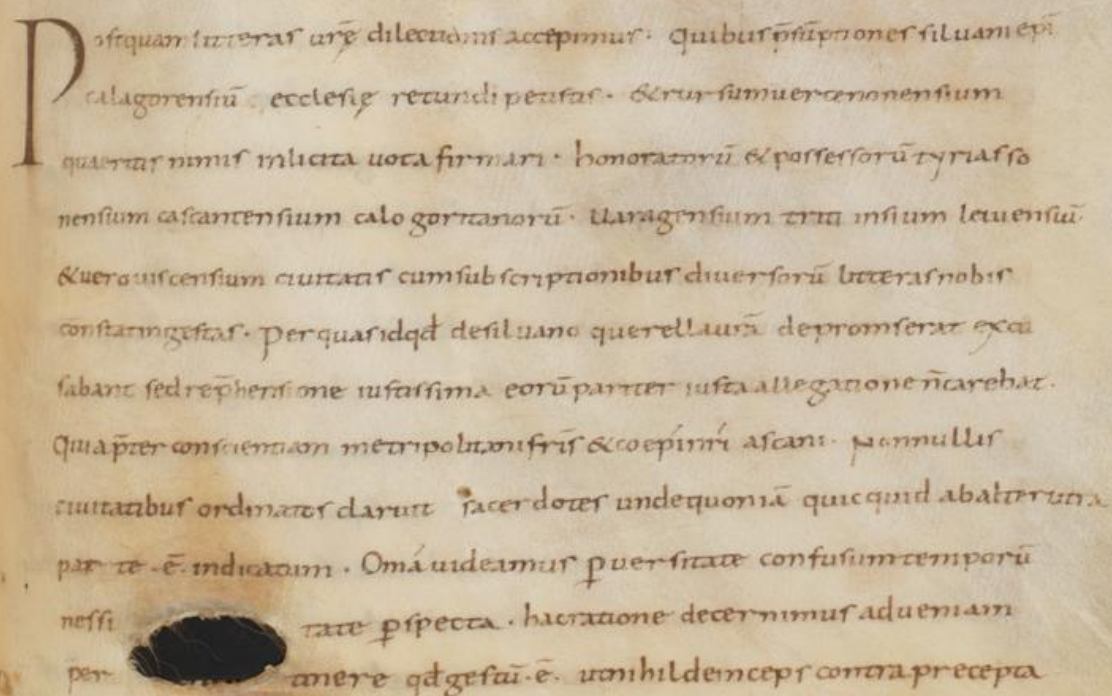 Postquam litteras urę dilectionis accepimus · Quibus p̄sūptiones siluani epī
calagorensiū ecclesię retundi petistis · & rursum uercenonensium
quaeritis nimis inlicita uota firmari · honoratorū & possessorū tyriasso
nensium cascantensium calogoritanorū · uaragensium triti insium leuuensiū
& uerouiscensium ciuitatis cum subscriptionibus diuersorū litteras nobis
constat ingestas · per quas id qđ de siluano querella urā depromserat excu
sabant sed rep̄hensione iustissima eorū pariter iusta allegatione n̄ carebat ·
Quia p̄ter conscientiam metripolitani fr̄is & coepī nrī ascani · Nonnullis
ciuitatibus ordinatos claruit sacerdotes unde quoniā quicquid ab alterutra
parte · ē · indicatum · Omā uideamus ꝑuersitate confusum temporū
nessi tate ꝑspecta · hac ratione decernimus ad ueniam
per tinere qđ gestū · ē · ut nihil deinceps contra precepta